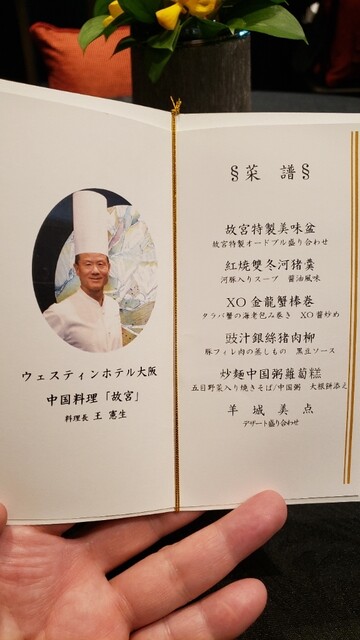 ウェスティンホテル大阪
中国料理「故宮」
料理長 王 憲生
§菜 譜§
故宮特製美味盆
故宮特製オードブル盛り合わせ
紅焼雙冬河猪羹
河豚入りスープ 醤油風味
XO金龍蟹棒巻
タラバ蟹の海老包み巻き XO醤炒め
豉汁銀絲猪肉柳
豚フィレ肉の蒸しもの 黒豆ソース
炒麺中国粥蘿蔔糕
五目野菜入り焼きそば/中国粥 大根餅添え
羊城美点
デザート盛り合わせ